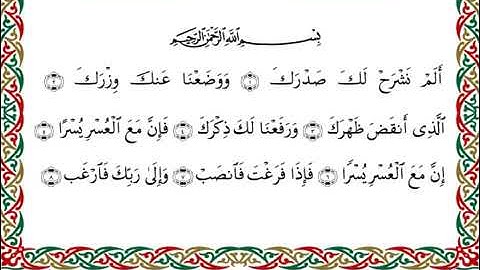 بِسْمِ ٱللَّهِ ٱلرَّحْمَٰنِ ٱلرَّحِيمِ
أَلَمْ نَشْرَحْ لَكَ صَدْرَكَ ۝١ وَوَضَعْنَا عَنكَ وِزْرَكَ ۝٢
الَّذِي أَنقَضَ ظَهْرَكَ ۝٣ وَرَفَعْنَا لَكَ ذِكْرَكَ ۝٤ فَإِنَّ مَعَ الْعُسْرِ يُسْرًا ۝٥
إِنَّ مَعَ الْعُسْرِ يُسْرًا ۝٦ فَإِذَا فَرَغْتَ فَانصَبْ ۝٧ وَإِلَى رَبِّكَ فَارْغَب ۝٨